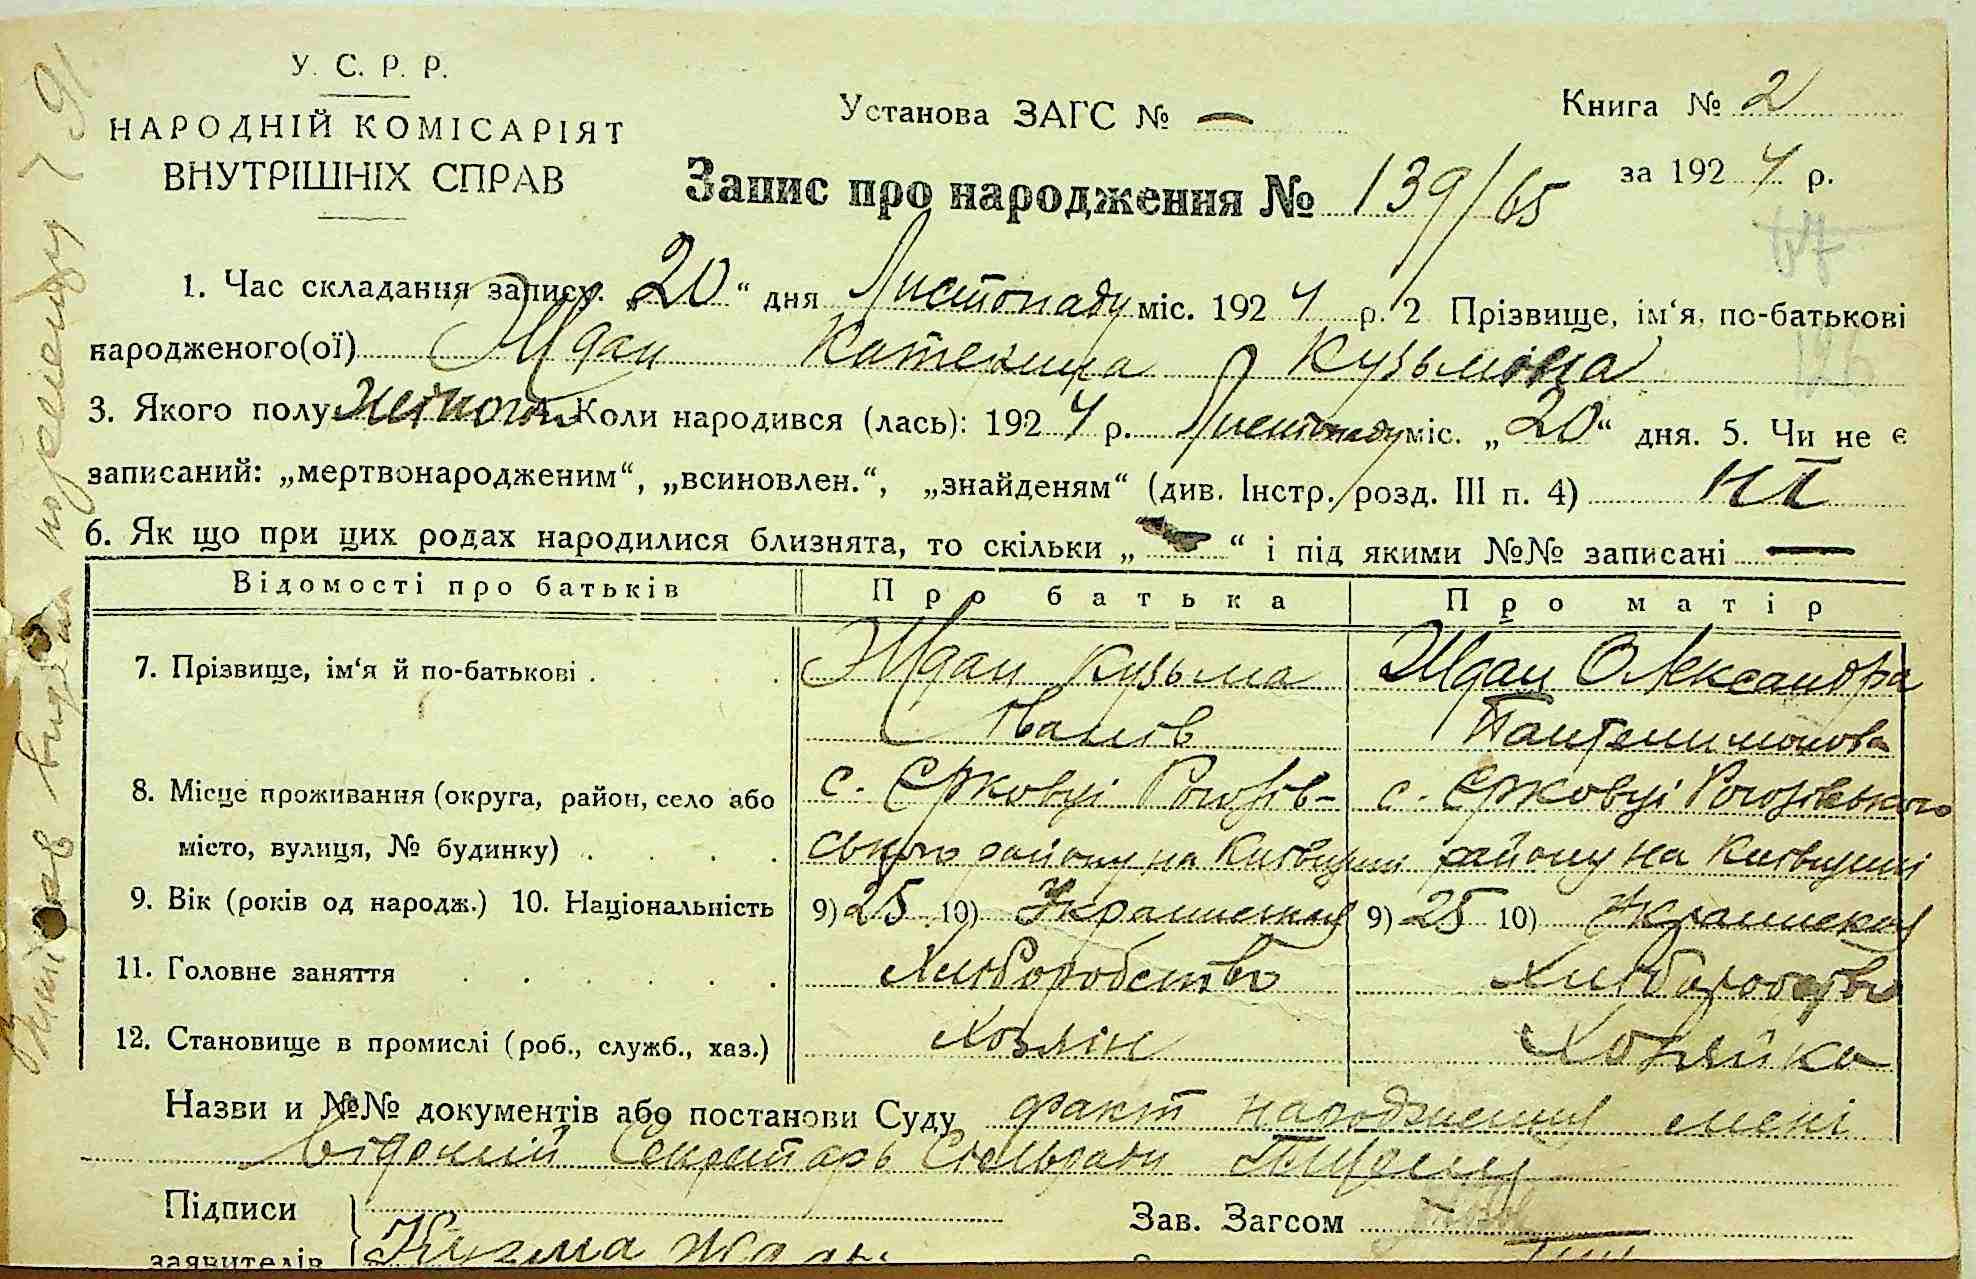 У. С. Р. Р.
НАРОДНІЙ КОМІСАРІЯТ
ВНУТРІШНІХ СПРАВ
Установа ЗАГС № —
Книга № 2
за 1924 р.
Запис про народження № 139/65
1. Час складання запису. „20“ дня Листопаду міс. 1924 р. 2 Прізвище, ім‘я, по-батькові
народженого(ої) Ждан Катерина Кузьмівна
3. Якого полу жіночого 4. Коли народився (лась): 1924 р. Листопаду міс. „20“ дня. 5. Чи не є
записаний: „мертвонародженим“, „всиновлен.“, „знайденям“ (див. Інстр. розд. III п. 4) ні
6. Як що при цих родах народилися близнята, то скільки „—“ і під якими №№ записані —
Відомості про батьків Про батька Про матір
7. Прізвище, ім‘я й по-батькові . Ждан Кузьма Ждан Олександра
Іванов Пантелимонова
8. Місце проживання (округа, район, село або с. Єрковці Рогозів- с. Єрковці Рогозівського
місто, вулиця, № будинку) . ського району на Київщині району на Київщині
9. Вік (років од народж.) 10. Національність 9) 25 10) Украинец 9) 25 10)
11. Головне заняття Хліборобство Хліборобство
12. Становище в промислі (роб., служб., хаз.) Хозяін Хозяйка
Назви и №№ документів або постанови Суду факт народження мені
відомий Секретарь Сільради
Підписи
заявителів Кузма Ждан
Зав. Загсом